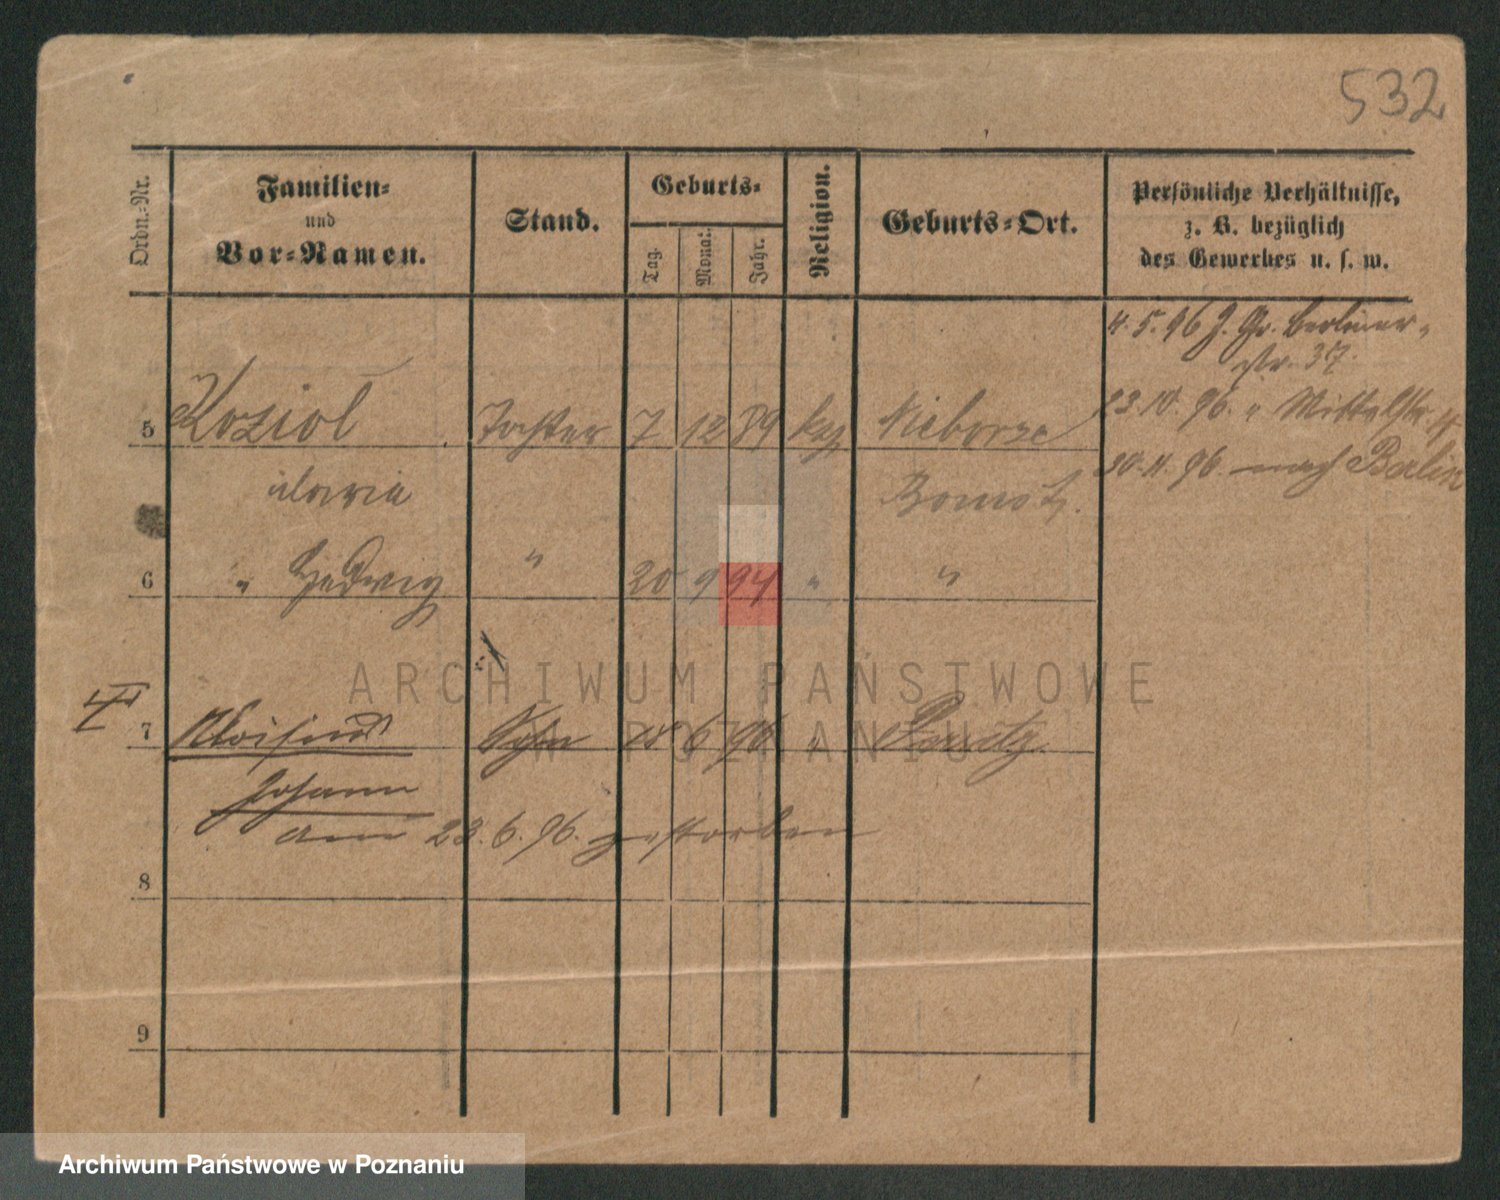 532
Ordn.-Nr.
Familien-
und
Vor-Namen.
Stand.
Geburts-
Tag.
Monat.
Jahr.
Religion.
Geburts-Ort.
Persönliche Verhältnisse,
z. B. bezüglich
des Gewerbes u. s. w.
4. 5. 96 J. Gr. Berliner-
str. 37.
23. 10. 96. " Mittelstr.
30. 11. 96. nach Berlin
5 Koziol Tochter 7 12 89 Nieborze
Maria Bomst
6 " Hedwig " 20 9 94 " "
7 Sohn 18 6 96 "
Johann
am 23. 6. 96. gestorben
8
9
ARCHIWUM PAŃSTWOWE
W POZNANIU
Archiwum Państwowe w Poznaniu